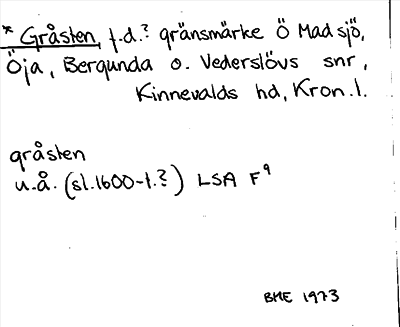 * Gråsten f.d.? gränsmärke Ö Madsjö,
Öja, Bergunda o. Vederslövs snr,
Kinnevalds hd, Kron.l.
gråsten
u.å. (sl.1600-t.?) LSA F9
BME 1973